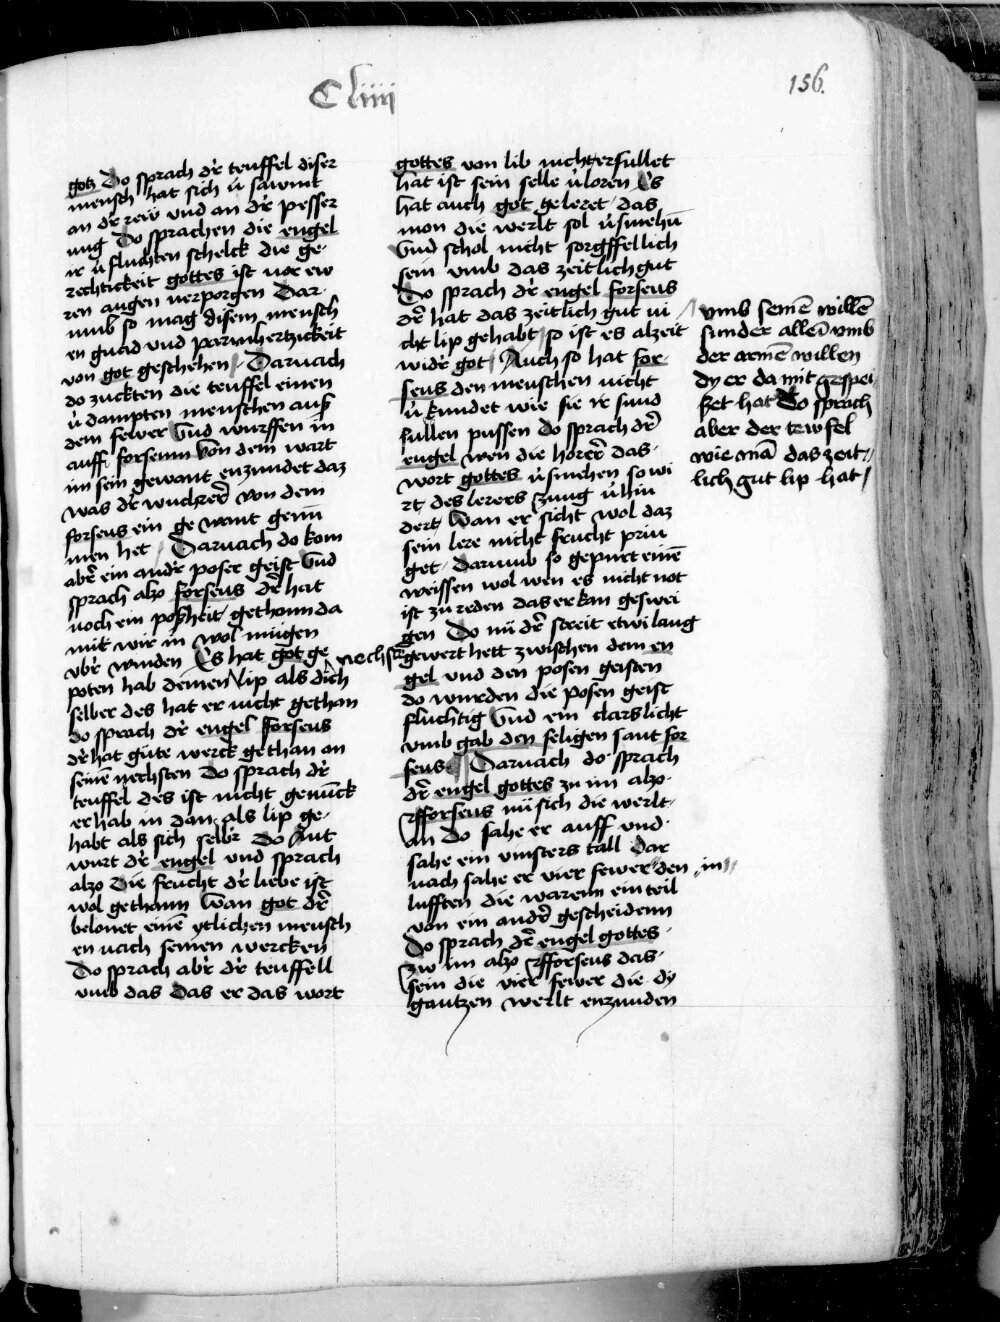 Cliiii
156.
gotz Do sprach dr̄ teuffel diser
mensch hat sich ṽ sawmt
an dr̄ rew vnd an dr̄ pesser
ung Do sprachen die engel
ir ṽ fluchten schelck die ge-
rechtickeit gottes ist vor ew
ren augen verporgen Dar-
umb so mag disem mensch
en gnad vnd parmhertzickeit
von got geschehen / Darnach
do zuckten die teuffel einen
ṽ dampten menschen auß
dem fewer Vnd wurffen in
auff forseum Von dem wart
im sein gewant enzundet daz
was dr̄ wuchrer̄ von dem
forseus ein ge want genū
men het / Darnach do kom
abr̄ ein andr̄ poser geist Vnd
sprach also forseus dr̄ hat
noch ein poßheit gethonn da
mit wir in wol mügen
vbr̄ winden Es hat got ge
poten hab deinen nechstē lip als dich
selber des hat er nicht gethan
do sprach dr̄ engel forseus
dr̄ hat gute werck gethan an
seinē nechsten Do sprach dr̄
teuffel des ist nicht genunck
er hab in dan als lip ge-
habt als sich selbr̄ Do Ant
wurt dr̄ engel vnd sprach
also Die frucht dr̄ liebe ist
wol gethann Wan got dr̄
belonet einē ytlichen mensch
en nach seinen wercken
Do sprach abr̄ dr̄ teuffell
vmb das Das er das wort
gottes von lib nicht erfullet
hat ist sein selle ṽloren Es
hat auch got geleret das
mon die werlt sol ṽsmehū
Vnd schol nicht sorgffellich
sein vmb das zeitlich gut
Do sprach dr̄ engel forseus
dr̄ hat das zeitlich gut ni
cht lip gehabt so ist es alzeit
widr̄ got / Auch so hat for-
seus den menschen nicht
ṽ kundet wie sie ir sund
sullen pussen Do sprach dr̄
engel wen die horer̄ das
wort gottes ṽsmehen so wi
rt des lerers zung ṽhin
dert Wan er sicht wol daz
sein lere nicht frucht prin
get Darumb so gepurt einē
weissen wol wen es nicht not
ist zu reden das er kan geswei
gen Do nū dr̄ streit etwi lang
gewert hett zwischen dem en
gel vnd den posen geisten
do wurden die posen geist
fluchtig Vnd ein clars licht
vmb gab den seligen sant for
seus / Darnach do sprach
dr̄ engel gottes zu im alzo
fforseus nū sich die werlt
an Do sahe er auff vnd
sahe ein vinsters tall Dar
nach sahe er vier fewer den in
lufften die warenn ein teil
von ein andr̄ gescheidenn
Do sprach dr̄ engel gottes
zw im alzo fforseus das
sein die vier fewer die dy
gantzen werlt enzunden
vmb seinē willē
sunder alleī vmb
der armē willen
dy er da mit gespei
szet hat Do sprach
aber der tewfel
wie mā das zeit-
lich gut lip hat /